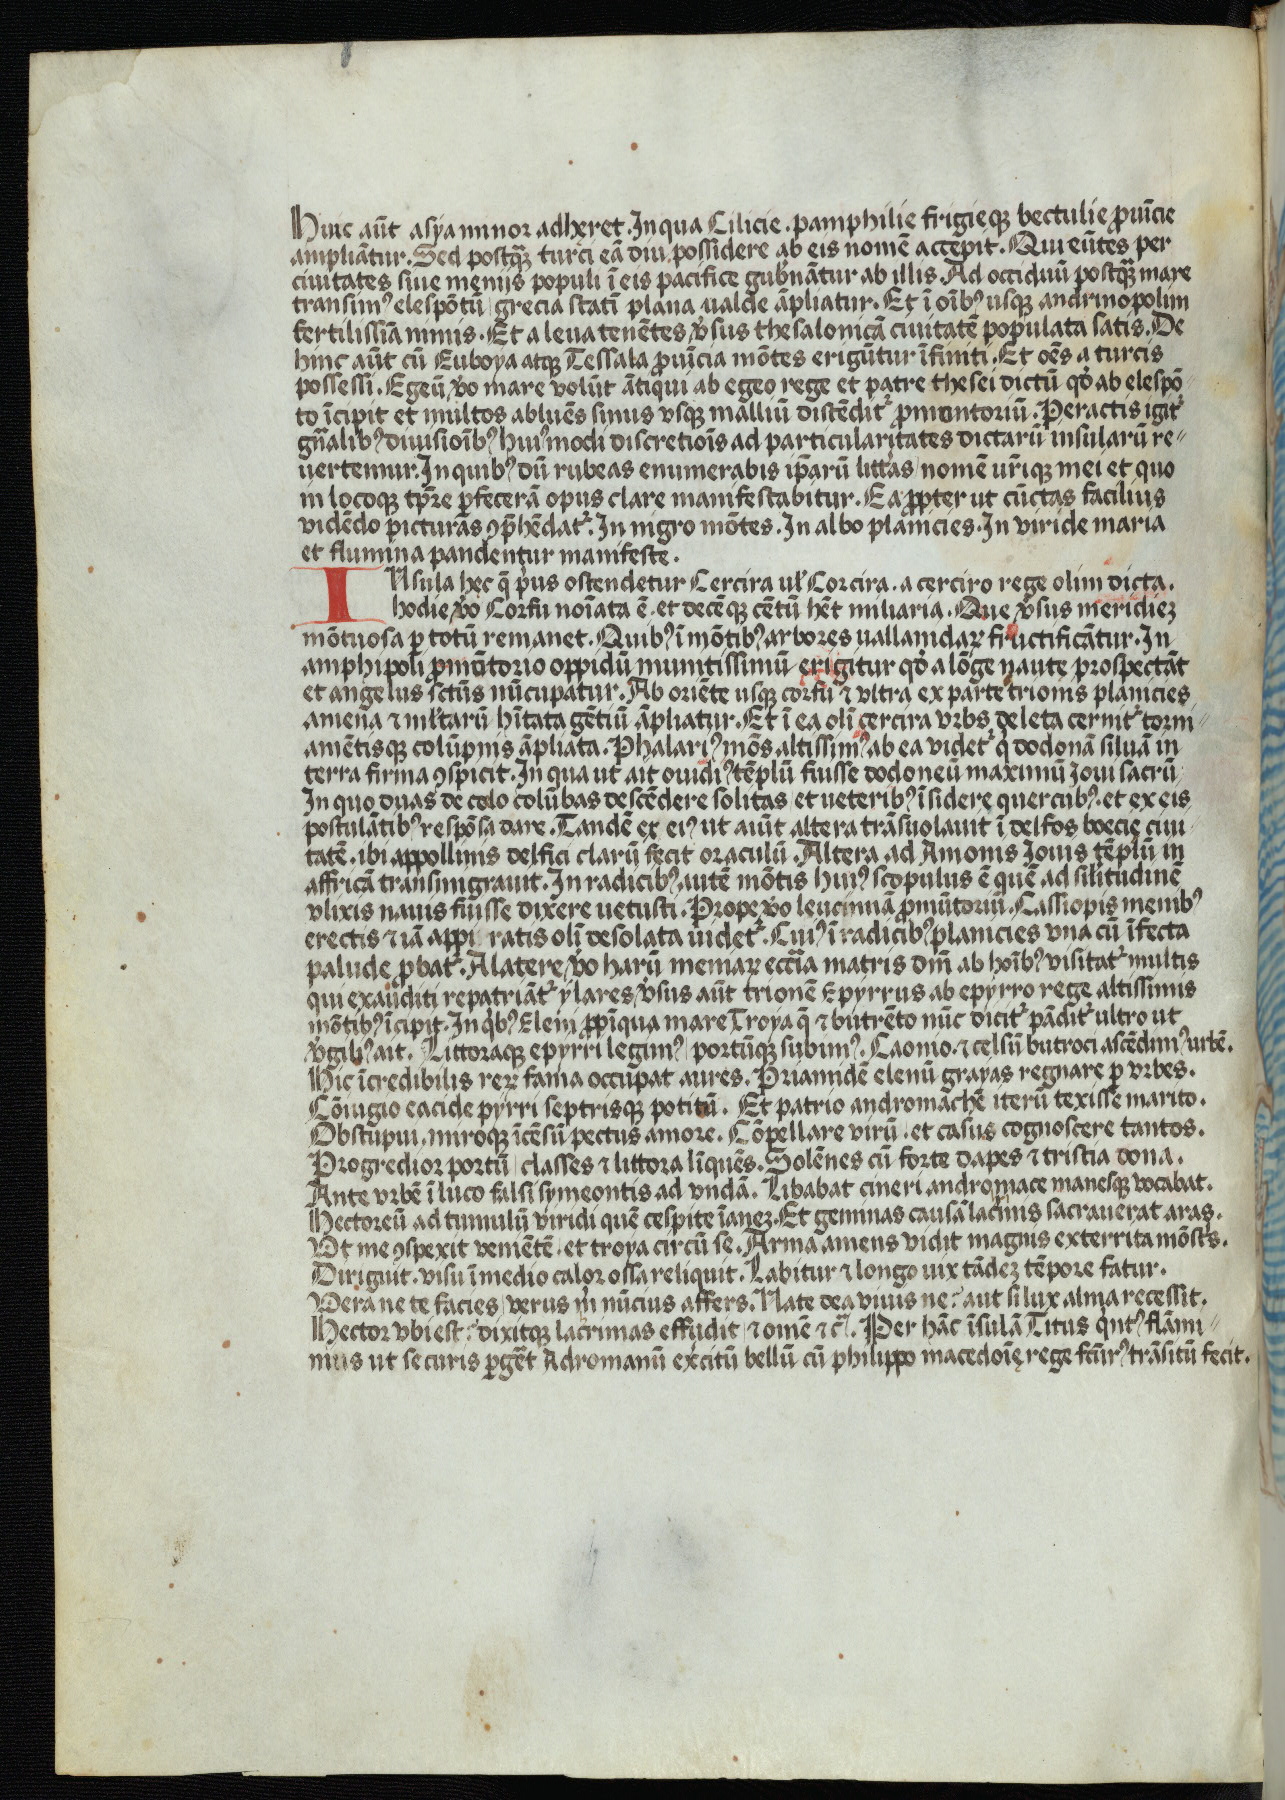 Hinc aūt asya minor adheret. In qua Cilicie. pamphilie frigieqȝ bectulie ꝓuīcie
ampliātur. Sed postqȝ turci eā diu possidere ab eis nomē accepit. Qui eūtes per
ciuitates siue menijs populi ī eis pacifice gub̄nātur ab illis. Ad occiduū postqȝ mare
transimꝰ elespōtū grecia statī plana ualde āpliatur. Et ī oībꝰ usqȝ andrinopolim
fertilissīa nimis. Et a leua tenētes v̓sus thesalonicā ciuitatē populata satis. De
hinc aūt cū Euboya atqȝ Tessala ꝓuīcia mōtes erigūtur īfiniti. Et oēs a turcis
possessi. Egeū v̓o mare volūt ātiqui ab egeo rege et patre thesei dictū qd̓ ab elespō
to īcipit et multos abluēs sinus vsqȝ malliū distēdit᷑ ꝓmontoriū. Peractis igit᷑
gn̄alibꝰ diuisioībꝰ huiꝰmodi discretiois ad particularitates dictarū insularū re„
uertemur. In quibꝰ dū rubeas enumerabis ip̄arū litt̄as nomē ur̄iqȝ mei et quo
in locoqȝ tp̄re ꝑfecerā opus clare manifestabitur. Ea ꝓpter ut cūctas facilius
vidēdo picturas ꝯp̄hēdat᷑. In nigro mōtes. In albo planicies. In viride maria
et flumina pandentur manifeste.
INsula hec q̄ p̓us ostendetur Cercira ul̓ Corcira. a cerciro rege olim dicta.
hodie v̓o Corfu noīata ē. et decēqȝ cētū h̄t miliaria. Que v̓sus meridieȝ
mōtuosa ꝑ totū remanet. Quibꝰ ī mōtibꝰ arbores uallanidaꝝ fructificātur. In
amphipoli ꝓmūtorio oppidū munitissimū erigitur qd̓ a lōge naute prospectāt
et angelus sctūs nūcupatur. Ab oriēte usqȝ corfū ⁊ vltra ex parte trionis planicies
amena ⁊ ml̓tarū h̄itata gētiū āpliatur. Et ī ea olī cercira vrbs deleta cernit᷑ torni„
amētisqȝ colūpnis āpliata. Phalariꝰ mōs altissimꝰ ab ea videt᷑ q̓ dodonā siluā in
terra firma ꝯspicit. In qua ut ait ouidiꝰ tēplū fuisse dodoneū maximū Ioui sacrū
In quo duas de celo colūbas descēdere solitas et ueteribꝰ īsidere quercubꝰ. et ex eis
postulātibꝰ respōsa dare. Tandē ex eiꝰ ut aiūt altera trāsuolauit ī delfos boecie ciui
tatē. ibi appollinis delfici clarū fecit oraculū. Altera ad Amonis Iouis tēplū in
affricā transmigrauit. In radicibꝰ autē mōtis huiꝰ scopulus ē quē ad sil̄itudinē
vlixis nauis fuisse dixere uetusti. Prope v̓o leucimā ꝓmūtoriū. Cassiopis membꝰ
erectis ⁊ iā appi ratis olī desolata uidet᷑. Cuiꝰ ī radicibꝰ planicies vna cū īfecta
palude ꝓbat᷑. A latere v̓o harū meniaꝝ ecctīa matris dn̄i ab hoībꝰ visitat᷑ multis
qui exauditi repatriāt᷑ ylares v̓sus aūt trionē Epyrrus ab epyrro rege altissimis
mōtibꝰ īcipit. In q̓bꝰ Eleni ꝓpīqua mare Troya q̄ ⁊ butrēto nūc dicit᷑ pādit᷑ ultro ut
v̓giliꝰ ait. Littoraqȝ epyrri legimꝰ portūqȝ subimꝰ. Caonio. ⁊ celsū butroci ascēdimꝰ urbē.
Hic īcredibilis reꝝ fama occupat aures. Priamidē elenū grayas regnare ꝑ vrbes.
Cōiugio eacide pyrri septrisqȝ potitū. Et patrio andromachē iterū texisse marito.
Obstupui. miroqȝ īcēsū pectus amore. Cōpellare virū. et casus cognoscere tantos.
Progredior portū classes ⁊ littora līquēs. Solēnes cū forte dapes ⁊ tristia dona.
Ante vrbē ī luco falsi symeontis ad vndā. Libabat cineri andromace manesqȝ vocabat.
Hectoreū ad tumulū viridi quē cespite īaneȝ. Et geminas causā lacrīmis sacrauerat aras.
Vt me ꝯspexit veniētē. et troya circū se. Arma amens vidit magnis exterrita mōst̄s.
Diriguit. visu ī medio calor ossa reliquit. Labitur ⁊ longo uix tādeȝ tēpore fatur.
Vera ne te facies verus m̓ nūcius affers. Nate dea viuis ne: aut si lux alma recessit.
Hector vbi est: dixitqȝ lacrimas effudit ⁊ omē ⁊ c̄. Per hāc īsulā Titus qntꝰ flāmi„
nius ut securis ꝑgēt Ad romanū exc̓itū bellū cū philippo macedoīe rege fctur̓ꝰ trāsitū fecit.